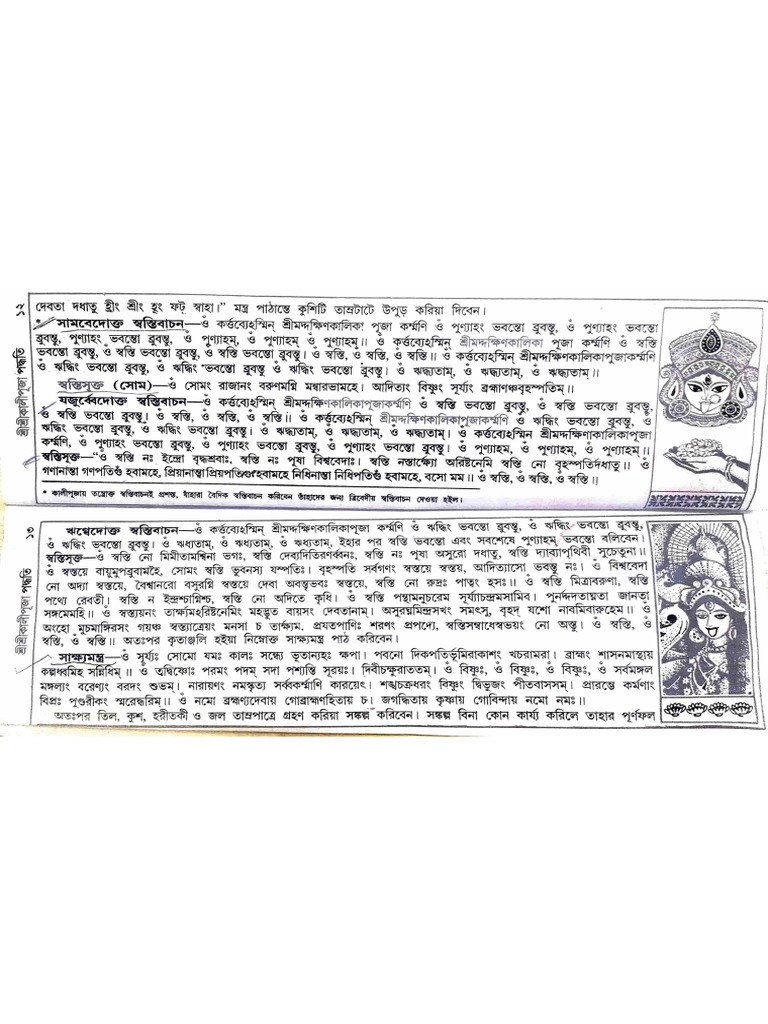 ১২
শ্রীশ্রীকালীপূজা পদ্ধতি
দেবতা দধাতু হ্রীং শ্রীং হূং ফট্ স্বাহা।” মন্ত্র পাঠান্তে কুশিটি তাম্রটাটে উপুড় করিয়া দিবেন।
* সামবেদোক্ত স্বস্তিবাচন—ওঁ কর্ত্তব্যেঽস্মিন্ শ্রীমদ্দক্ষিণকালিকা পূজা কর্ম্মণি ওঁ পুণ্যাহং ভবন্তো ব্রুবন্তু, ওঁ পুণ্যাহং ভবন্তো
ব্রুবন্তু, পুণ্যাহং ভবন্তো ব্রুবন্তু, ওঁ পুণ্যাহম্, ওঁ পুণ্যাহম্ ওঁ পুণ্যাহম্॥ ওঁ কর্ত্তব্যেঽস্মিন্ শ্রীমদ্দক্ষিণকালিকা পূজা কর্ম্মণি ওঁ স্বস্তি
ভবন্তো ব্রুবন্তু, ওঁ স্বস্তি ভবন্তো ব্রুবন্তু, ওঁ স্বস্তি ভবন্তো ব্রুবন্তু। ওঁ স্বস্তি, ওঁ স্বস্তি, ওঁ স্বস্তি॥ ওঁ কর্ত্তব্যেঽস্মিন্ শ্রীমদ্দক্ষিণকালিকাপূজাকর্ম্মণি
ওঁ ঋদ্ধিং ভবন্তো ব্রুবন্তু, ওঁ ঋদ্ধিং ভবন্তো ব্রুবন্তু ওঁ ঋদ্ধিং ভবন্তো ব্রুবন্তু। ওঁ ঋদ্ধ্যতাম্, ওঁ ঋদ্ধ্যতাম্, ওঁ ঋদ্ধ্যতাম্॥
স্বস্তিসূক্ত (সোম)—ওঁ সোমং রাজানং বরুণমগ্নি মন্বারভামহে। আদিত্যং বিষ্ণুং সূর্য্যং ব্রহ্মাণঞ্চবৃহস্পতিম্॥
যজুর্ব্বেদোক্ত স্বস্তিবাচন—ওঁ কর্ত্তব্যেঽস্মিন্ শ্রীমদ্দক্ষিণকালিকাপূজাকর্ম্মণি ওঁ স্বস্তি ভবন্তো ব্রুবন্তু, ওঁ স্বস্তি ভবন্তো ব্রুবন্তু,
ওঁ স্বস্তি ভবন্তো ব্রুবন্তু। ওঁ স্বস্তি, ওঁ স্বস্তি, ওঁ স্বস্তি॥ ওঁ কর্ত্তব্যেঽস্মিন্ শ্রীমদ্দক্ষিণকালিকাপূজাকর্ম্মণি ওঁ ঋদ্ধিং ভবন্তো ব্রুবন্তু, ওঁ
ঋদ্ধিং ভবন্তো ব্রুবন্তু, ওঁ ঋদ্ধিং ভবন্তো ব্রুবন্তু। ওঁ ঋদ্ধ্যতাম্, ওঁ ঋদ্ধ্যতাম্, ওঁ ঋদ্ধ্যতাম্। ওঁ কর্ত্তব্যেঽস্মিন্ শ্রীমদ্দক্ষিণকালিকাপূজা
কর্ম্মণি, ওঁ পুণ্যাহং ভবন্তো ব্রুবন্তু, ওঁ পুণ্যাহং ভবন্তো ব্রুবন্তু, ওঁ পুণ্যাহং ভবন্তো ব্রুবন্তু। ওঁ পুণ্যাহম, ওঁ পুণ্যাহম, ওঁ পুণ্যাহম্॥
স্বস্তিসূক্ত—“ওঁ স্বস্তি নঃ ইন্দ্রো বৃদ্ধশ্রবাঃ, স্বস্তি নঃ পূষা বিশ্ববেদাঃ। স্বস্তি নস্তার্ক্ষ্যো অরিষ্টনেমি স্বস্তি নো বৃহস্পতির্দধাতু॥ ওঁ
গণানান্তা গণপতিগুঁ হবামহে, প্রিয়ানান্ত্বা প্রিয়পতিগুঁ হবামহে নিধিনান্তা নিধিপতিগুঁ হবামহে, বসো মম॥ ওঁ স্বস্তি, ওঁ স্বস্তি, ওঁ স্বস্তি॥
* কালীপূজায় তন্ত্রোক্ত স্বস্তিবাচনই প্রশস্ত, যাঁহারা বৈদিক স্বস্তিবাচন করিবেন তাঁহাদের জন্য ত্রিবেদীয় স্বস্তিবাচন দেওয়া হইল।
১৩
শ্রীশ্রীকালীপূজা পদ্ধতি
ঋগ্বেদোক্ত স্বস্তিবাচন—ওঁ কর্ত্তব্যেঽস্মিন্ শ্রীমদ্দক্ষিণকালিকাপূজা কর্ম্মণি ওঁ ঋদ্ধিং ভবন্তো ব্রুবন্তু, ওঁ ঋদ্ধিং ভবন্তো ব্রুবন্তু,
ওঁ ঋদ্ধিং ভবন্তো ব্রুবন্তু। ওঁ ঋধ্যতাম্, ওঁ ঋধ্যতাম্, ওঁ ঋধ্যতাম্, ইহার পর স্বস্তি ভবন্তো এবং সবশেষে পুণ্যাহম্ ভবন্তো বলিবেন।
স্বস্তিসূক্ত—ওঁ স্বস্তি নো মিমীতামশ্বিনা ভগঃ, স্বস্তি দেব্যদিতিরণর্ব্বনঃ, স্বস্তি নঃ পূষা অসুরো দধাতু, স্বস্তি দ্যাব্যাপৃথিবী সুচেতুনা॥
ওঁ স্বস্তয়ে বায়ুমুপব্রুবামহৈ, সোমং স্বস্তি ভুবনস্য যস্পতিঃ। বৃহস্পতি সর্বগণং স্বস্তয়ে স্বস্তয়, আদিত্যাসো ভবন্তু নঃ। ওঁ বিশ্ববেদা
নো অদ্যা স্বস্তয়ে, বৈশ্বানরো বসুরগ্নি স্বস্তয়ে দেবা অবন্ত্বভবঃ স্বস্তয়ে, স্বস্তি নো রুদ্রঃ পাত্বং হসঃ॥ ওঁ স্বস্তি মিত্রাবরুণা, স্বস্তি
পথ্যে রেবতী। স্বস্তি ন ইন্দ্রশ্চাগ্নিশ্চ, স্বস্তি নো অদিতে কৃধি। ওঁ স্বস্তি পন্থামনুচরেম সূর্য্যাচন্দ্রমসাবিব। পুনর্দ্দদতাঘ্নতা জানতা
সঙ্গমেমহি॥ ওঁ স্বস্ত্যয়নং তার্ক্ষ্যমরিষ্টনেমিং মহদ্ভূত বায়সং দেবতানাম্। অসুরঘ্নমিন্দ্রসখং সমৎসু, বৃহদ্ যশো নাবমিবারুহেম॥ ওঁ
অংহো মুচমাঙ্গিরসং গয়ঞ্চ স্বস্ত্যাত্রেয়ং মনসা চ তার্ক্ষ্যম, প্রযতপাণিঃ শরণং প্রপদ্যে, স্বস্তিসম্বাধেস্বভয়ং নো অস্তু। ওঁ স্বস্তি, ওঁ
স্বস্তি, ওঁ স্বস্তি॥ অতঃপর কৃতাঞ্জলি হইয়া নিম্নোক্ত সাক্ষ্যমন্ত্র পাঠ করিবেন।
সাক্ষ্যমন্ত্র—ওঁ সূর্য্যঃ সোমো যমঃ কালঃ সন্ধ্যে ভূতান্যহঃ ক্ষপা। পবনো দিকপতির্ভূমিরাকাশং খচরামরা। ব্রাহ্মং শাসনমাস্থায়
কল্পধ্বমিহ সন্নিধিম্॥ ওঁ তদ্বিষ্ণোঃ পরমং পদম্ সদা পশ্যন্তি সূরয়ঃ। দিবীচক্ষুরাততম্। ওঁ বিষ্ণুঃ, ওঁ বিষ্ণুঃ, ওঁ বিষ্ণুঃ, ওঁ সর্বমঙ্গল
মঙ্গল্যং বরেণ্যং বরদং শুভম্। নারায়ণং নমস্কৃত্য সর্ব্বকর্ম্মাণি কারয়েৎ। শঙ্খচক্রধরং বিষ্ণুং দ্বিভুজং পীতবাসসম্। প্রারম্ভে কর্মণাং
বিপ্রঃ পুণ্ডরীকং স্মরেদ্ধরিম্॥ ওঁ নমো ব্রহ্মণ্যদেবায় গোব্রাহ্মণহিতায় চ। জগদ্ধিতায় কৃষ্ণায় গোবিন্দায় নমো নমঃ॥
অতঃপর তিল, কুশ, হরীতকী ও জল তাম্রপাত্রে গ্রহণ করিয়া সঙ্কল্প করিবেন। সঙ্কল্প বিনা কোন কার্য্য করিলে তাহার পূর্ণফল